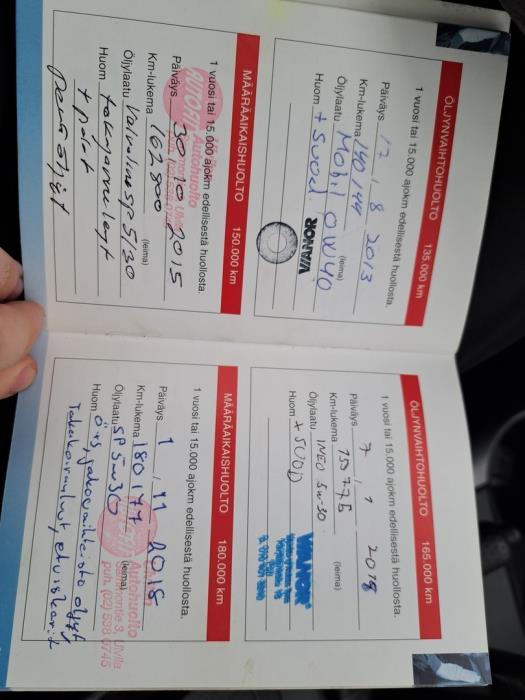 ÖLJYNVAIHTOHUOLTO 135.000 km
1 vuosi tai 15.000 ajokm edellisestä huollosta.
Päiväys 17 / 8 2013
Km-lukema 140 144
(leima)
Öljylaatu Mobil 0W40
Huom + suod.
VIANOR
MÄÄRÄAIKAISHUOLTO 150.000 km
1 vuosi tai 15.000 ajokm edellisestä huollosta.
Päiväys 30 / 10 2015
Autohuolto
Km-lukema 162800
(leima)
Öljylaatu Valvoline SP 5/30
Huom
+ perät
ÖLJYNVAIHTOHUOLTO 165.000 km
1 vuosi tai 15.000 ajokm edellisestä huollosta.
Päiväys 7 / 1 2018
Km-lukema 175 775
(leima)
Öljylaatu INEO 5w-30
Huom + SUOD
VIANOR
MÄÄRÄAIKAISHUOLTO 180.000 km
1 vuosi tai 15.000 ajokm edellisestä huollosta.
Päiväys 1 / 11 2018
Km-lukema 180 177
(leima)
Öljylaatu SP 5w30
Huom Ö+S, jakovaihteisto öljyt
Autohuolto
3, Ulvila
puh. (02) 538 0745